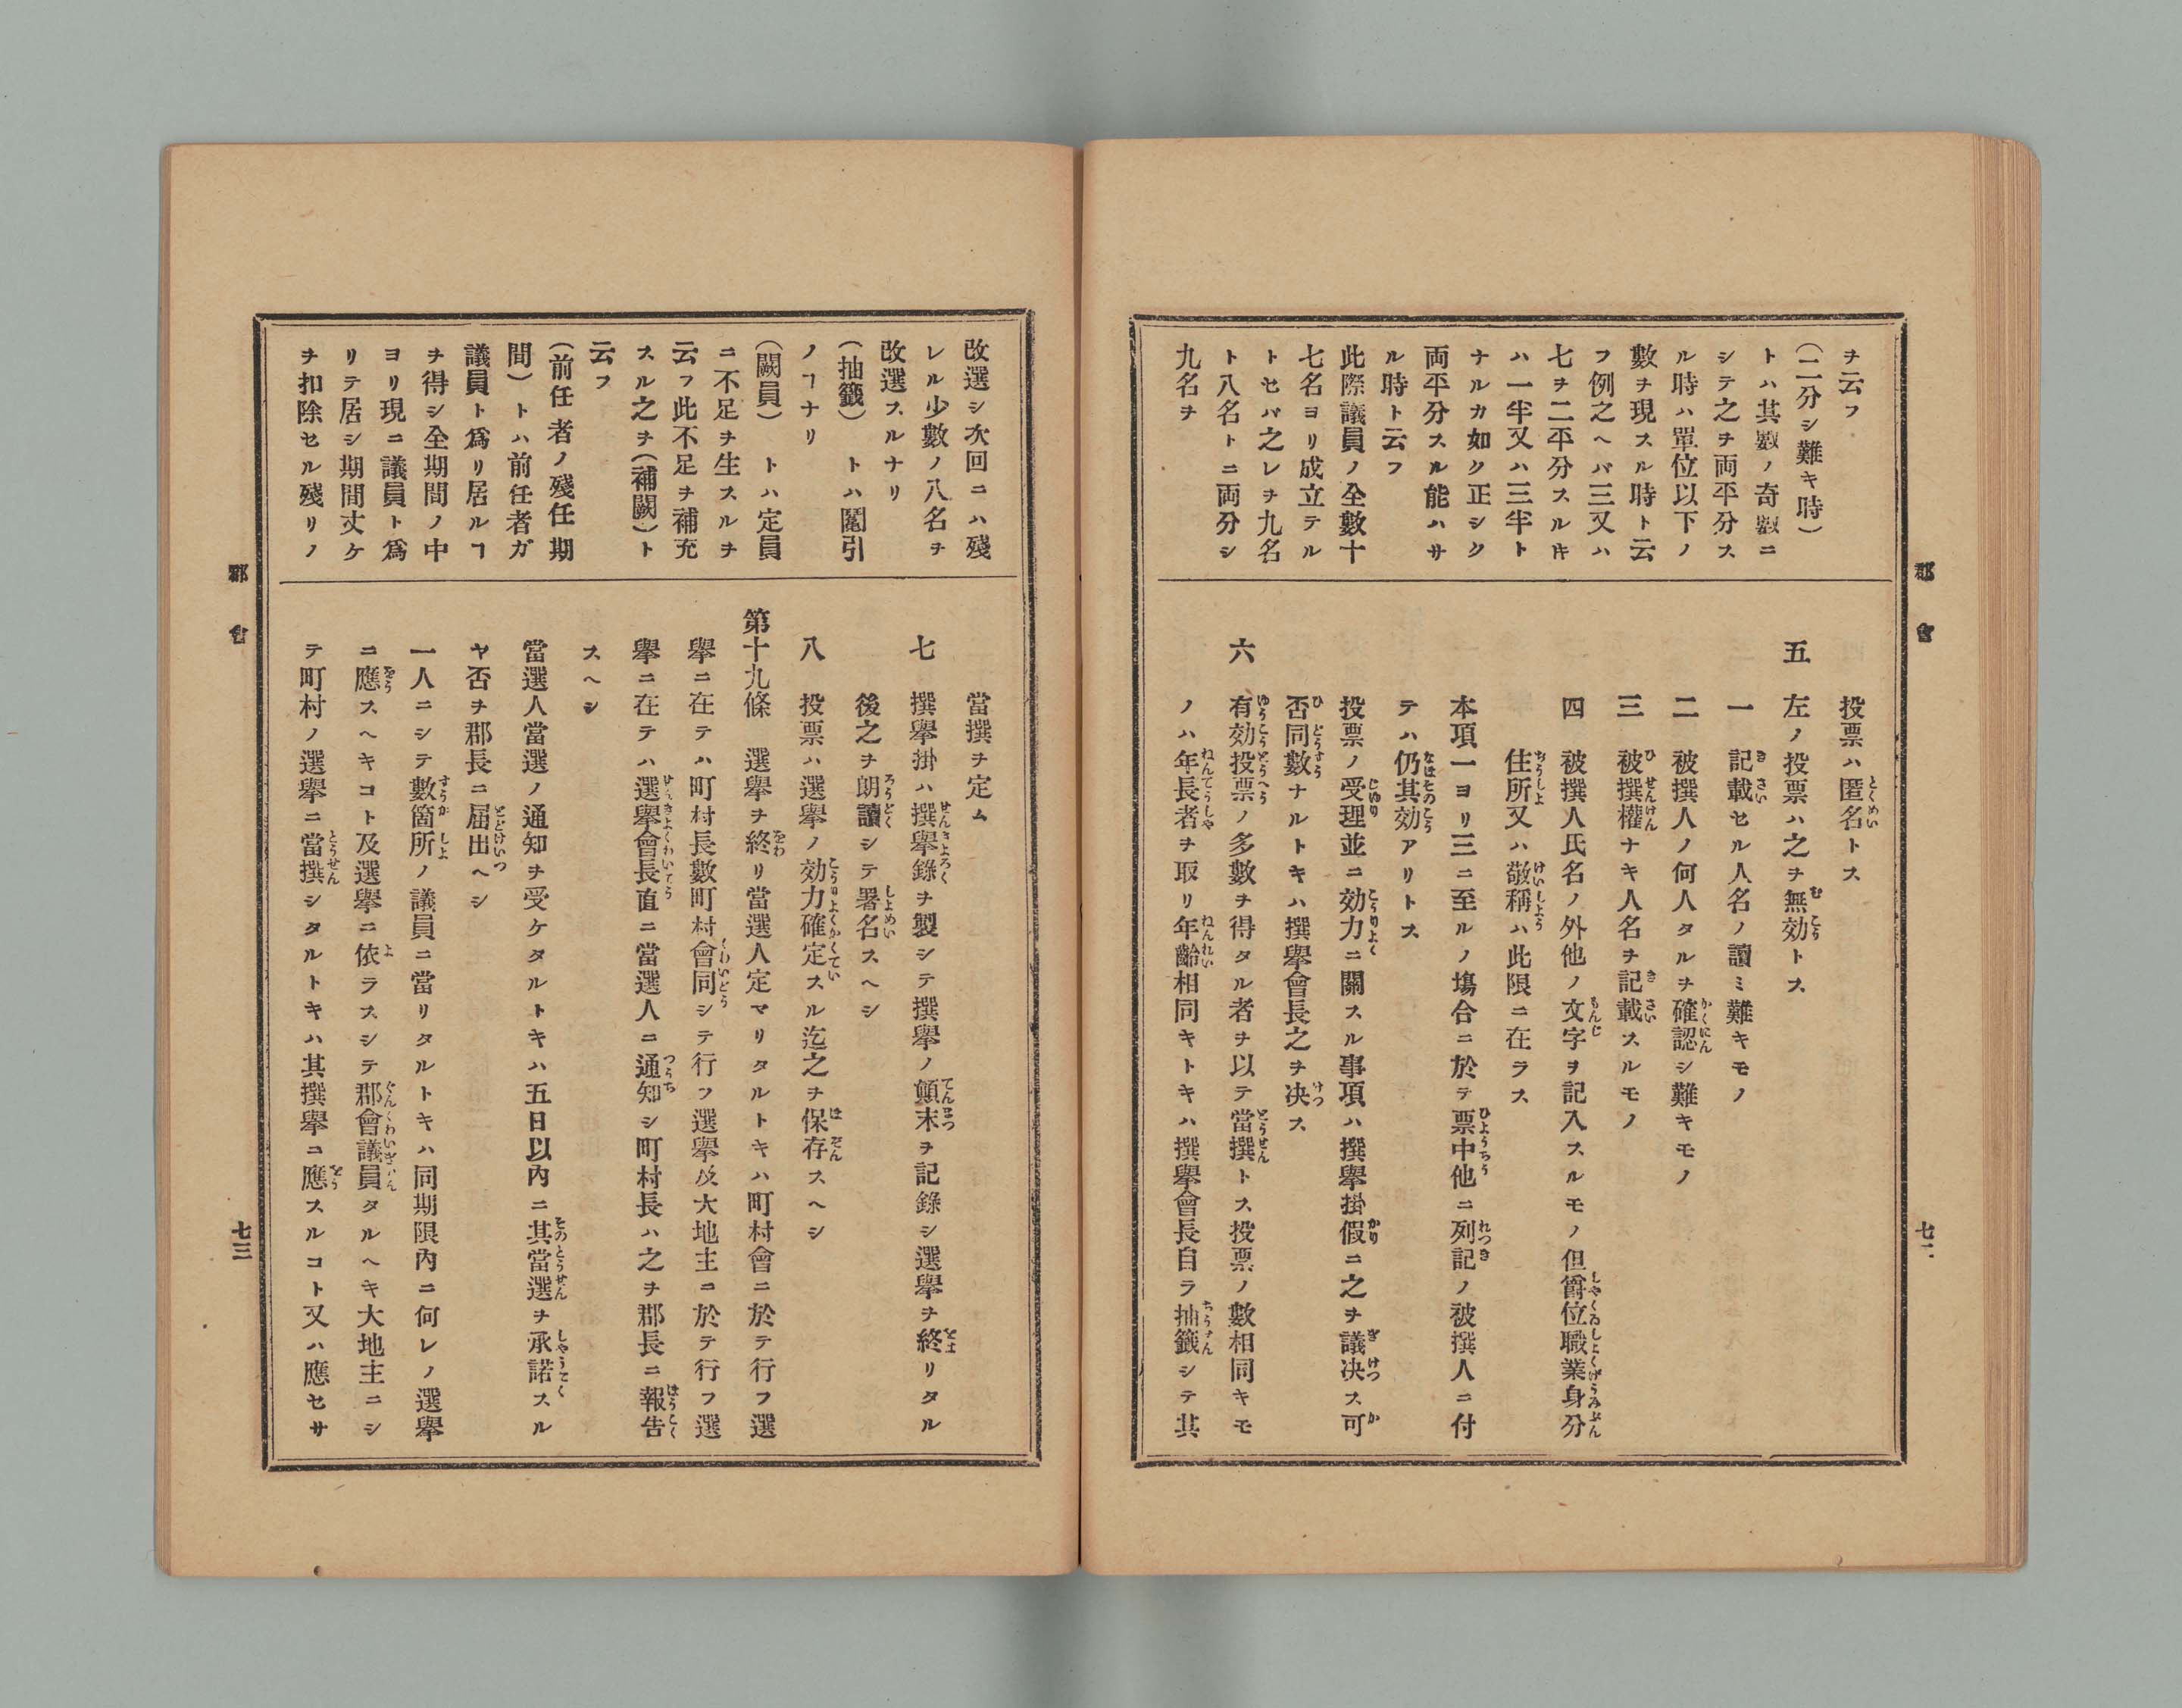 郡會
七二
ヲ云フ
(二分シ難キ時)
トハ其數ノ奇數ニ
シテ之ヲ両平分ス
ル時ハ單位以下ノ
數ヲ現スル時ト云
フ例之ヘバ三又ハ
七ヲ二平分スルヰ
ハ一半又ハ三半ト
ナルカ如ク正シク
両平分スル能ハサ
ル時ト云フ
此際議員ノ全數十
七名ヨリ成立テル
トセバ之レヲ九名
ト八名トニ両分シ
九名ヲ
投票ハ匿名トス
五 左ノ投票ハ之ヲ無効トス
一 記載セル人名ノ讀ミ難キモノ
二 被撰人ノ何人タルヲ確認シ難キモノ
三 被撰權ナキ人名ヲ記載スルモノ
四 被撰人氏名ノ外他ノ文字ヲ記入スルモノ但爵位職業身分
住所又ハ敬稱ハ此限ニ在ラス
本項一ヨリ三ニ至ルノ塲合ニ於テ票中他ニ列記ノ被撰人ニ付
テハ仍其効アリトス
投票ノ受理並ニ効力ニ關スル事項ハ撰擧掛假ニ之ヲ議决ス可
否同數ナルトキハ撰擧會長之ヲ决ス
六 有効投票ノ多數ヲ得タル者ヲ以テ當撰トス投票ノ數相同キモ
ノハ年長者ヲ取リ年齡相同キトキハ撰擧會長自ラ抽籤シテ其
改選シ次回ニハ殘
レル少數ノ八名ヲ
改選スルナリ
(抽籤) トハ鬮引
ノヿナリ
(闕員) トハ定員
ニ不足ヲ生スルヲ
云フ此不足ヲ補充
スル之ヲ(補闕)ト
云フ
(前任者ノ殘任期
間)トハ前任者ガ
議員ト爲リ居ルヿ
ヲ得シ全期間ノ中
ヨリ現ニ議員ト爲
リテ居シ期間丈ケ
ヲ扣除セル殘リノ
當撰ヲ定ム
七 撰擧掛ハ撰擧錄ヲ製シテ撰擧ノ顛末ヲ記錄シ選擧ヲ終リタル
後之ヲ朗讀シテ署名スヘシ
八 投票ハ選擧ノ効力確定スル迄之ヲ保存スヘシ
第十九條 選擧ヲ終リ當選人定マリタルトキハ町村會ニ於テ行フ選
擧ニ在テハ町村長數町村會同シテ行フ選擧及大地主ニ於テ行フ選
擧ニ在テハ選擧會長直ニ當選人ニ通知シ町村長ハ之ヲ郡長ニ報告
スヘシ
當選人當選ノ通知ヲ受ケタルトキハ五日以內ニ其當選ヲ承諾スル
ヤ否ヲ郡長ニ届出ヘシ
一人ニシテ數箇所ノ議員ニ當リタルトキハ同期限內ニ何レノ選擧
ニ應スヘキコト及選擧ニ依ラスシテ郡會議員タルヘキ大地主ニシ
テ町村ノ選擧ニ當撰シタルトキハ其撰擧ニ應スルコト又ハ應セサ
郡會
七三